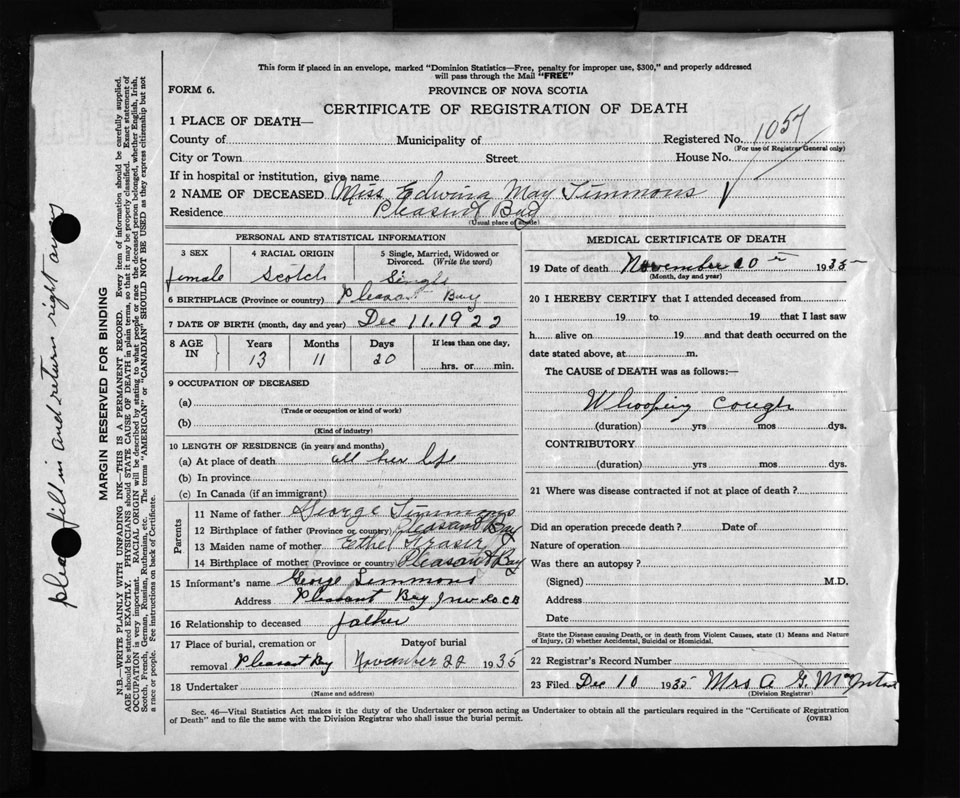 This form if placed in an envelope, marked "Dominion Statistics—Free, penalty for improper use, $300," and properly addressed
will pass through the Mail "FREE"
FORM 6.
PROVINCE OF NOVA SCOTIA
CERTIFICATE OF REGISTRATION OF DEATH
1 PLACE OF DEATH—
County of Municipality of Registered No. 1057
(For use of Registrar General only)
City or Town Street House No.
If in hospital or institution, give name
2 NAME OF DECEASED Miss Edwina May Timmons
Residence Pleasant Bay
(Usual place of abode)
PERSONAL AND STATISTICAL INFORMATION
3 SEX 4 RACIAL ORIGIN 5 Single, Married, Widowed or Divorced. (Write the word)
female Scotch Single
6 BIRTHPLACE (Province or country) Pleasant Bay
7 DATE OF BIRTH (month, day and year) Dec 11, 1922
8 AGE IN Years Months Days If less than one day,
13 11 20 hrs. or min.
9 OCCUPATION OF DECEASED
(a)
(Trade or occupation or kind of work)
(b)
(Kind of industry)
10 LENGTH OF RESIDENCE (in years and months)
(a) At place of death all her life
(b) In province
(c) In Canada (if an immigrant)
Parents
11 Name of father George Timmons
12 Birthplace of father (Province or country) Pleasant Bay
13 Maiden name of mother Ethel Fraser
14 Birthplace of mother (Province or country) Pleasant Bay
15 Informant's name George Timmons
Address Pleasant Bay Inv. Co. C B
16 Relationship to deceased father
17 Place of burial, cremation or Date of burial
removal Pleasant Bay November 22 1935
18 Undertaker
(Name and address)
MEDICAL CERTIFICATE OF DEATH
19 Date of death November 20 1935
(Month, day and year)
20 I HEREBY CERTIFY that I attended deceased from
19 to 19 that I last saw
h alive on 19 and that death occurred on
date stated above, at m.
The CAUSE of DEATH was as follows:—
Whooping cough
(duration) yrs mos dys.
CONTRIBUTORY
(duration) yrs mos dys.
21 Where was disease contracted if not at place of death?
Did an operation precede death? Date of
Nature of operation
Was there an autopsy?
(Signed) M.D.
Address
Date
State the Disease causing Death, or in death from Violent Causes, state (1) Means and Nature
of Injury, (2) whether Accidental, Suicidal or Homicidal.
22 Registrar's Record Number
23 Filed Dec 10 1935 Mrs A G.
(Division Registrar)
Sec. 46—Vital Statistics Act makes it the duty of the Undertaker or person acting as Undertaker to obtain all the particulars required in the "Certificate of Registration
of Death" and to file the same with the Division Registrar who shall issue the burial permit.
(OVER)
please fill in and return right away
MARGIN RESERVED FOR BINDING
N.B.—WRITE PLAINLY WITH UNFADING INK—THIS IS A PERMANENT RECORD. Every item of information should be carefully supplied.
AGE should be stated EXACTLY. PHYSICIANS should STATE CAUSE OF DEATH in plain terms, so that it may be properly classified. Exact statement of
OCCUPATION is very important. RACIAL ORIGIN will be described by stating to what people or race the deceased person belonged, whether English, Irish,
Scotch, French, German, Russian, Ruthenian, etc. The terms "AMERICAN" or "CANADIAN" SHOULD NOT BE USED as they express citizenship but not
a race or people. See instructions on back of Certificate.